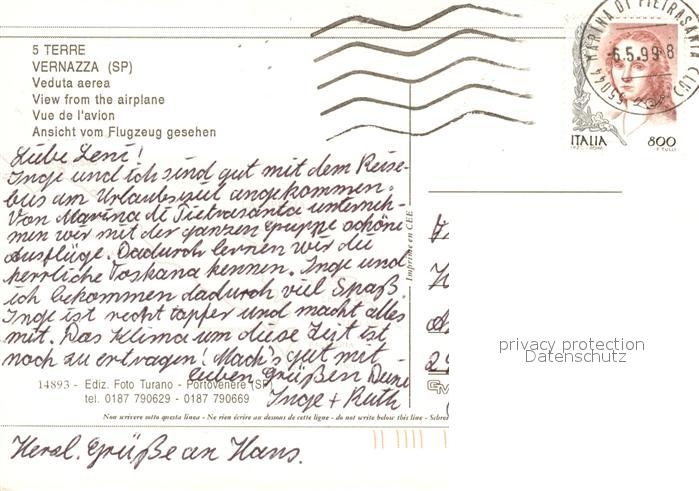 5 TERRE
VERNAZZA (SP)
Veduta aerea
View from the airplane
Vue de l'avion
Ansicht vom Flugzeug gesehen
55044 MARINA DI PIETRASANTA (LU)
-6.5.99-8
ITALIA 800
Liebe Leni!
Inge und ich sind gut mit dem Reise-
bus am Urlaubsziel angekommen.
Von Marina di Pietrasanta unterneh-
men wir mit der ganzen Gruppe schöne
Ausflüge. Dadurch lernen wir die
herrliche Toskana kennen. Inge und
ich bekommen dadurch viel Spaß.
Inge ist recht tapfer und macht alles
mit. Das Klima um diese Zeit ist
noch zu ertragen! Mach's gut mit
lieben Grüßen Deine
Inge + Ruth
14893 - Ediz. Foto Turano - Portovenere (SP)
tel. 0187 790629 - 0187 790669
Imprimé en CEE
Non scrivere sotto questa linea - Ne rien écrire au dessous de cette ligne - do not write below this line -
Herzl. Grüße an Hans.
privacy protection
Datenschutz